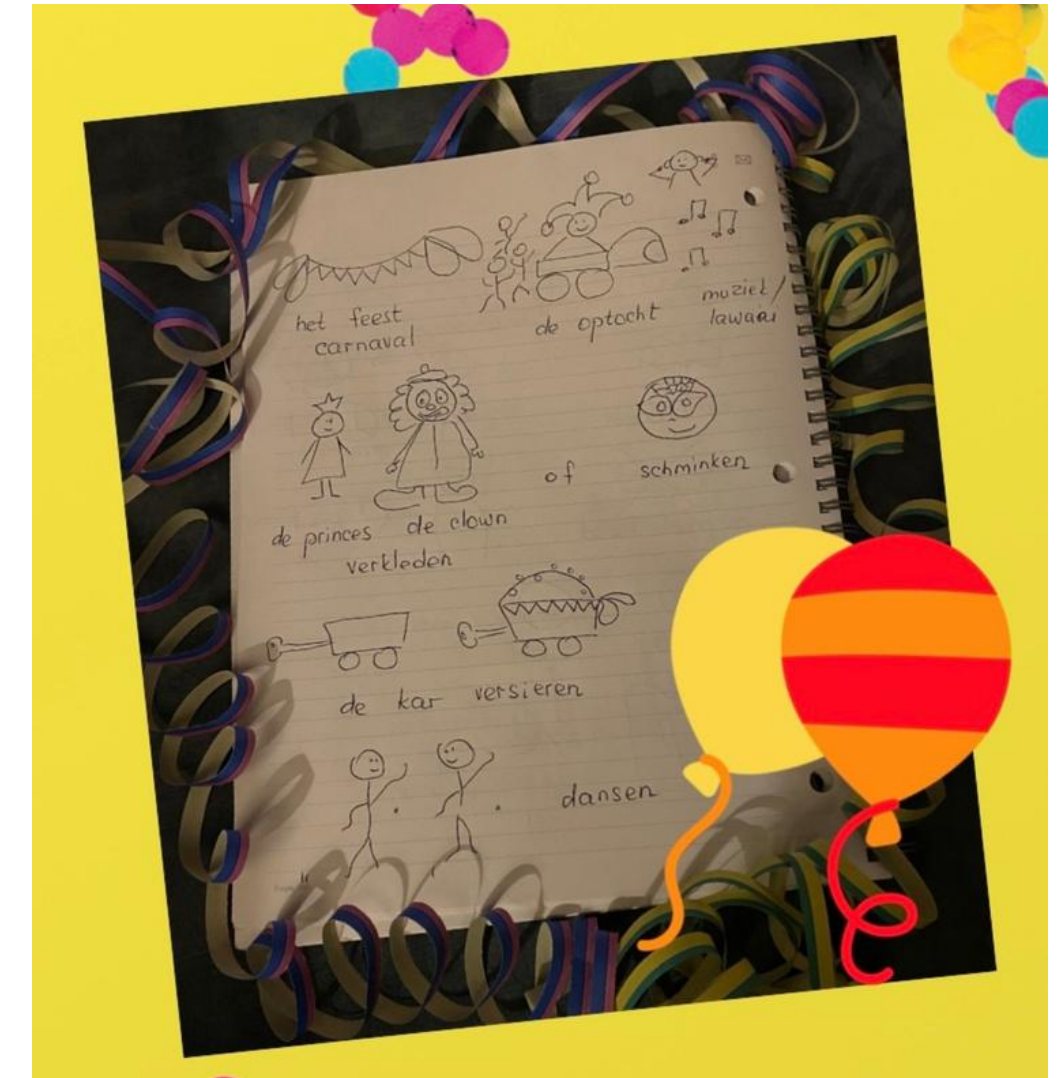 het feest
carnaval
de optocht
muziek/
lawaai
de princes de clown
verkleden
of
schminken
de kar versieren
dansen